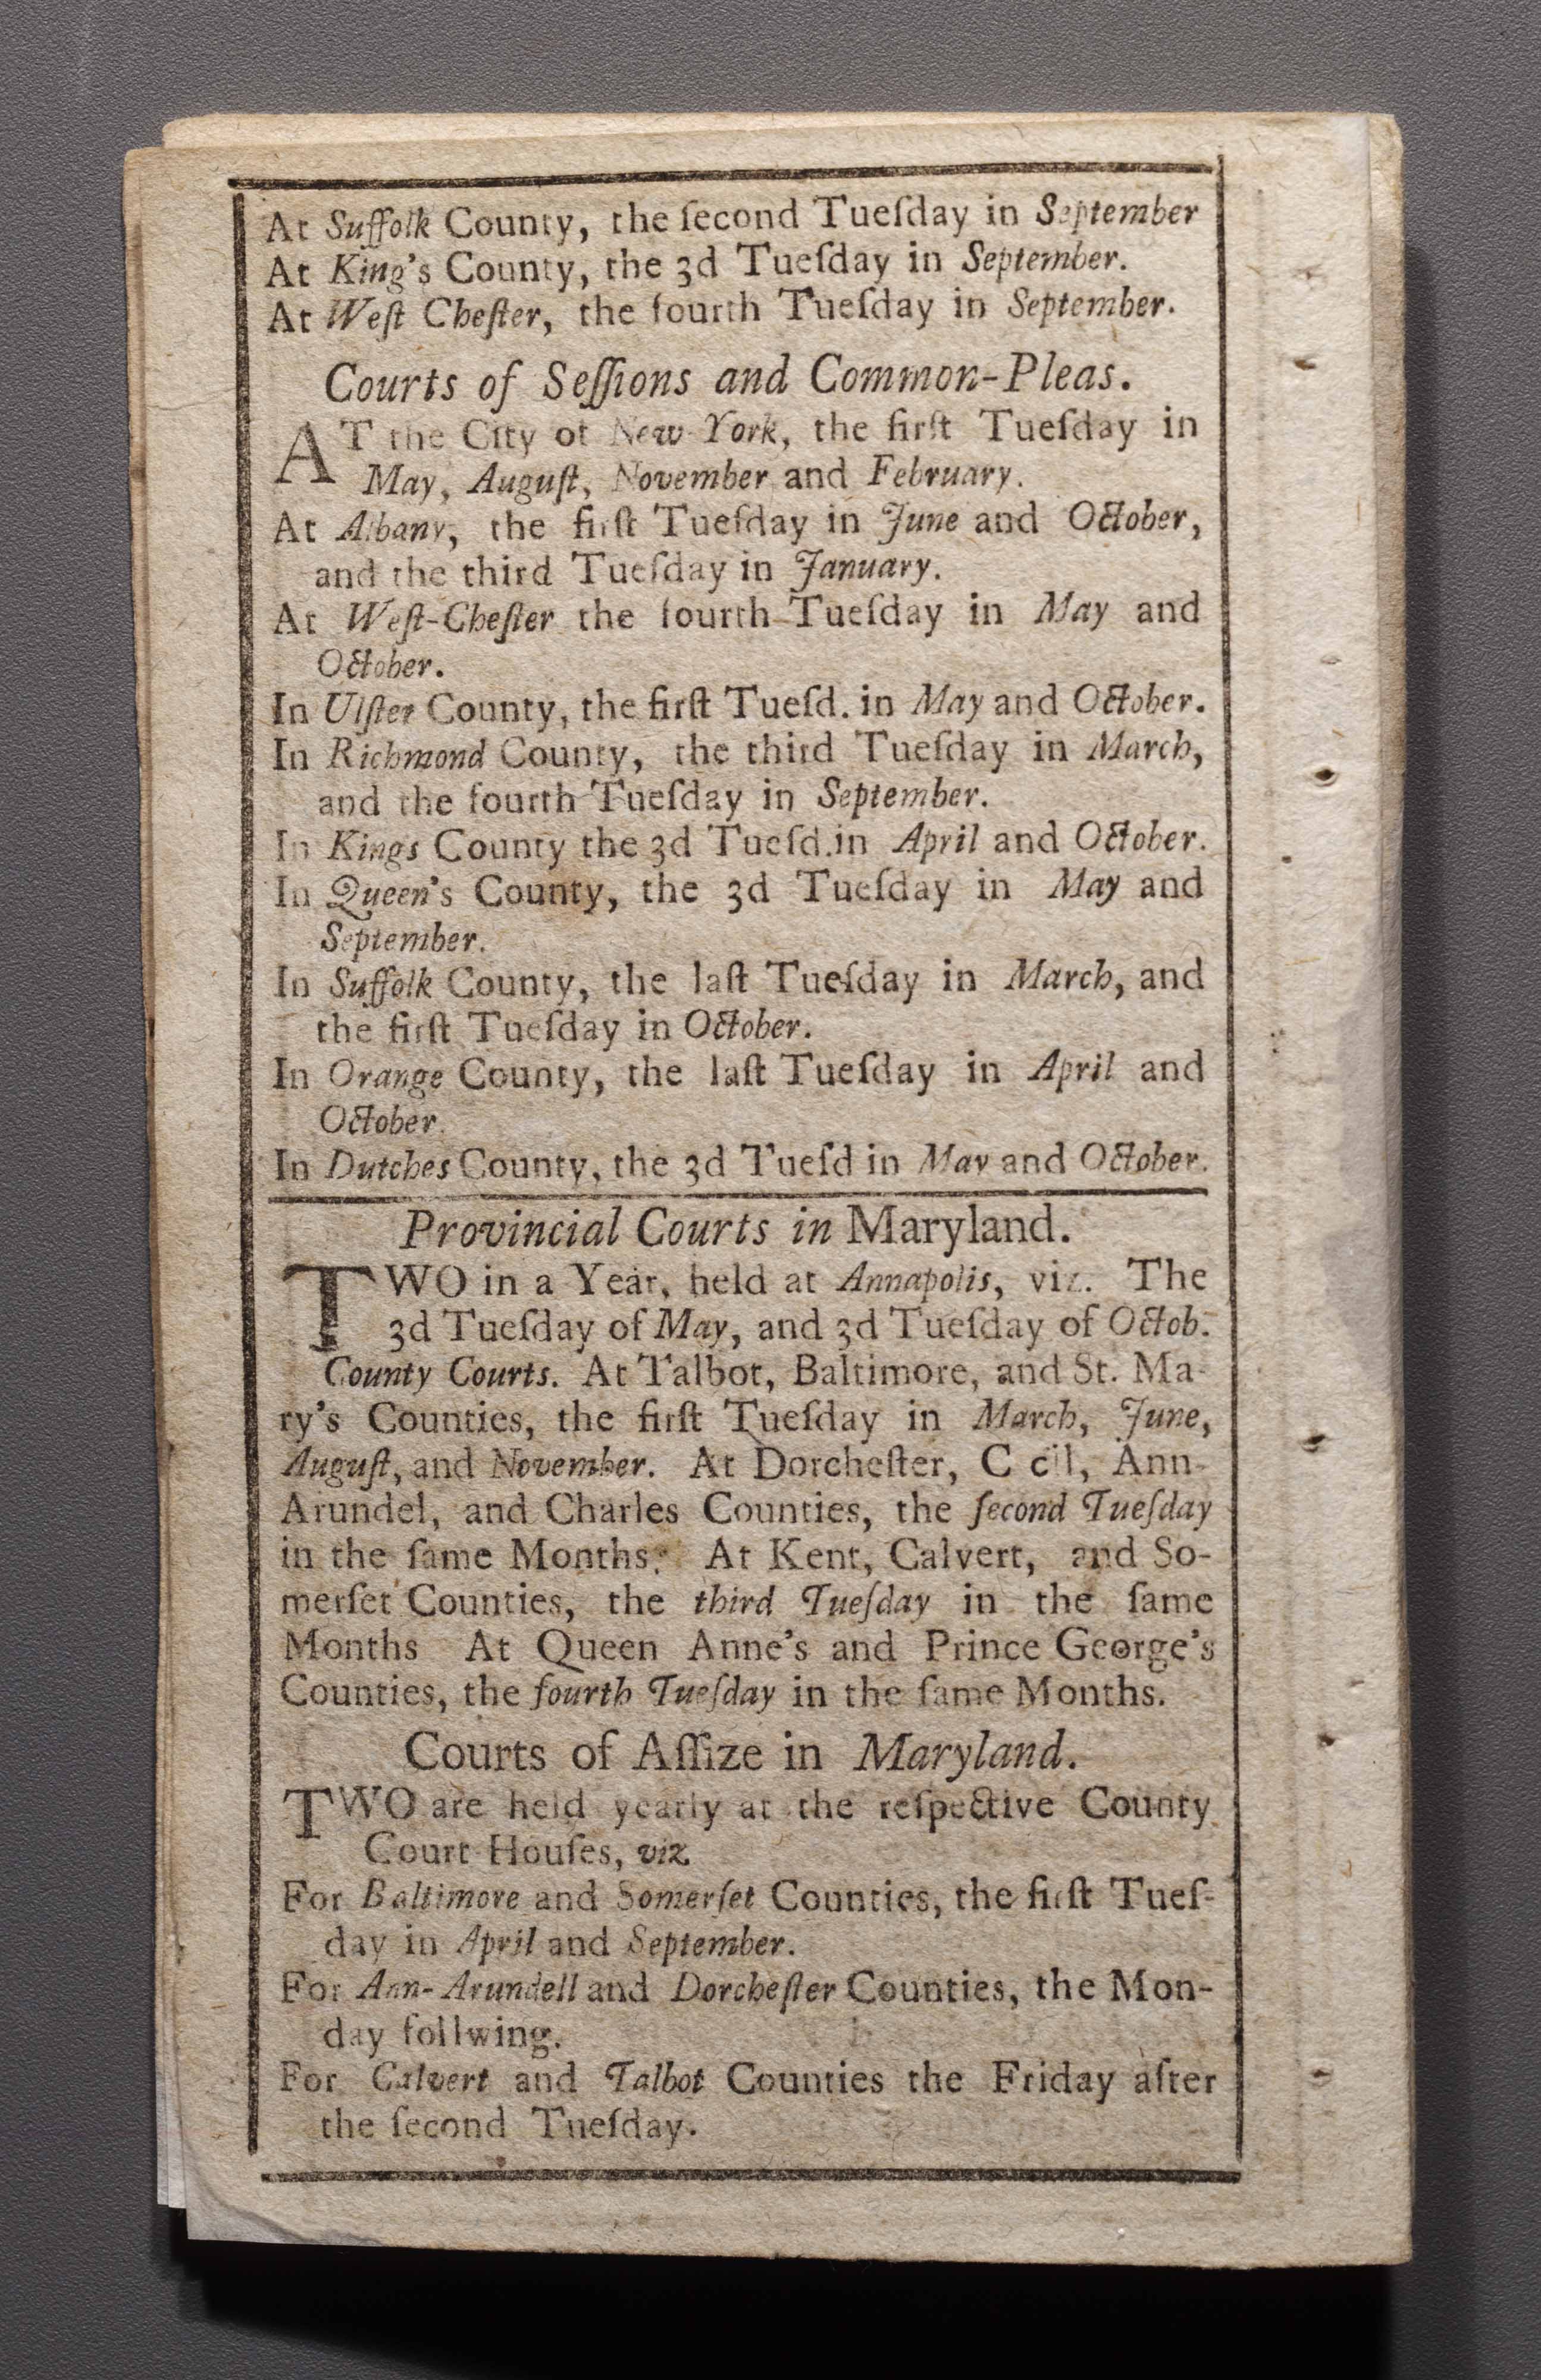 At Suffolk County, the ſecond Tueſday in September
At King's County, the 3d Tueſday in September.
At Weſt Cheſter, the fourth Tueſday in September.
Courts of Seſſions and Common-Pleas.
AT the City of New York, the firſt Tueſday in
May, Auguſt, November and February.
At Albany, the firſt Tueſday in June and October,
and the third Tueſday in January.
At Weſt-Cheſter the fourth Tueſday in May and
October.
In Ulſter County, the firſt Tueſd. in May and October.
In Richmond County, the third Tueſday in March,
and the fourth Tueſday in September.
In Kings County the 3d Tueſd.in April and October.
In Queen's County, the 3d Tueſday in May and
September.
In Suffolk County, the laſt Tueſday in March, and
the firſt Tueſday in October.
In Orange County, the laſt Tueſday in April and
October.
In Dutches County, the 3d Tueſd in May and October.
Provincial Courts in Maryland.
TWO in a Year, held at Annapolis, viz. The
3d Tueſday of May, and 3d Tueſday of Octob.
County Courts. At Talbot, Baltimore, and St. Ma-
ry's Counties, the firſt Tueſday in March, June,
Auguſt, and November. At Dorcheſter, C cil, Ann-
Arundel, and Charles Counties, the ſecond Tueſday
in the ſame Months. At Kent, Calvert, and So-
merſet Counties, the third Tueſday in the ſame
Months At Queen Anne's and Prince George's
Counties, the fourth Tueſday in the ſame Months.
Courts of Aſſize in Maryland.
TWO are held yearly at the reſpective County
Court Houſes, viz.
For Baltimore and Somerſet Counties, the firſt Tueſ-
day in April and September.
For Ann-Arundell and Dorcheſter Counties, the Mon-
day follwing.
For Calvert and Talbot Counties the Friday after
the ſecond Tueſday.